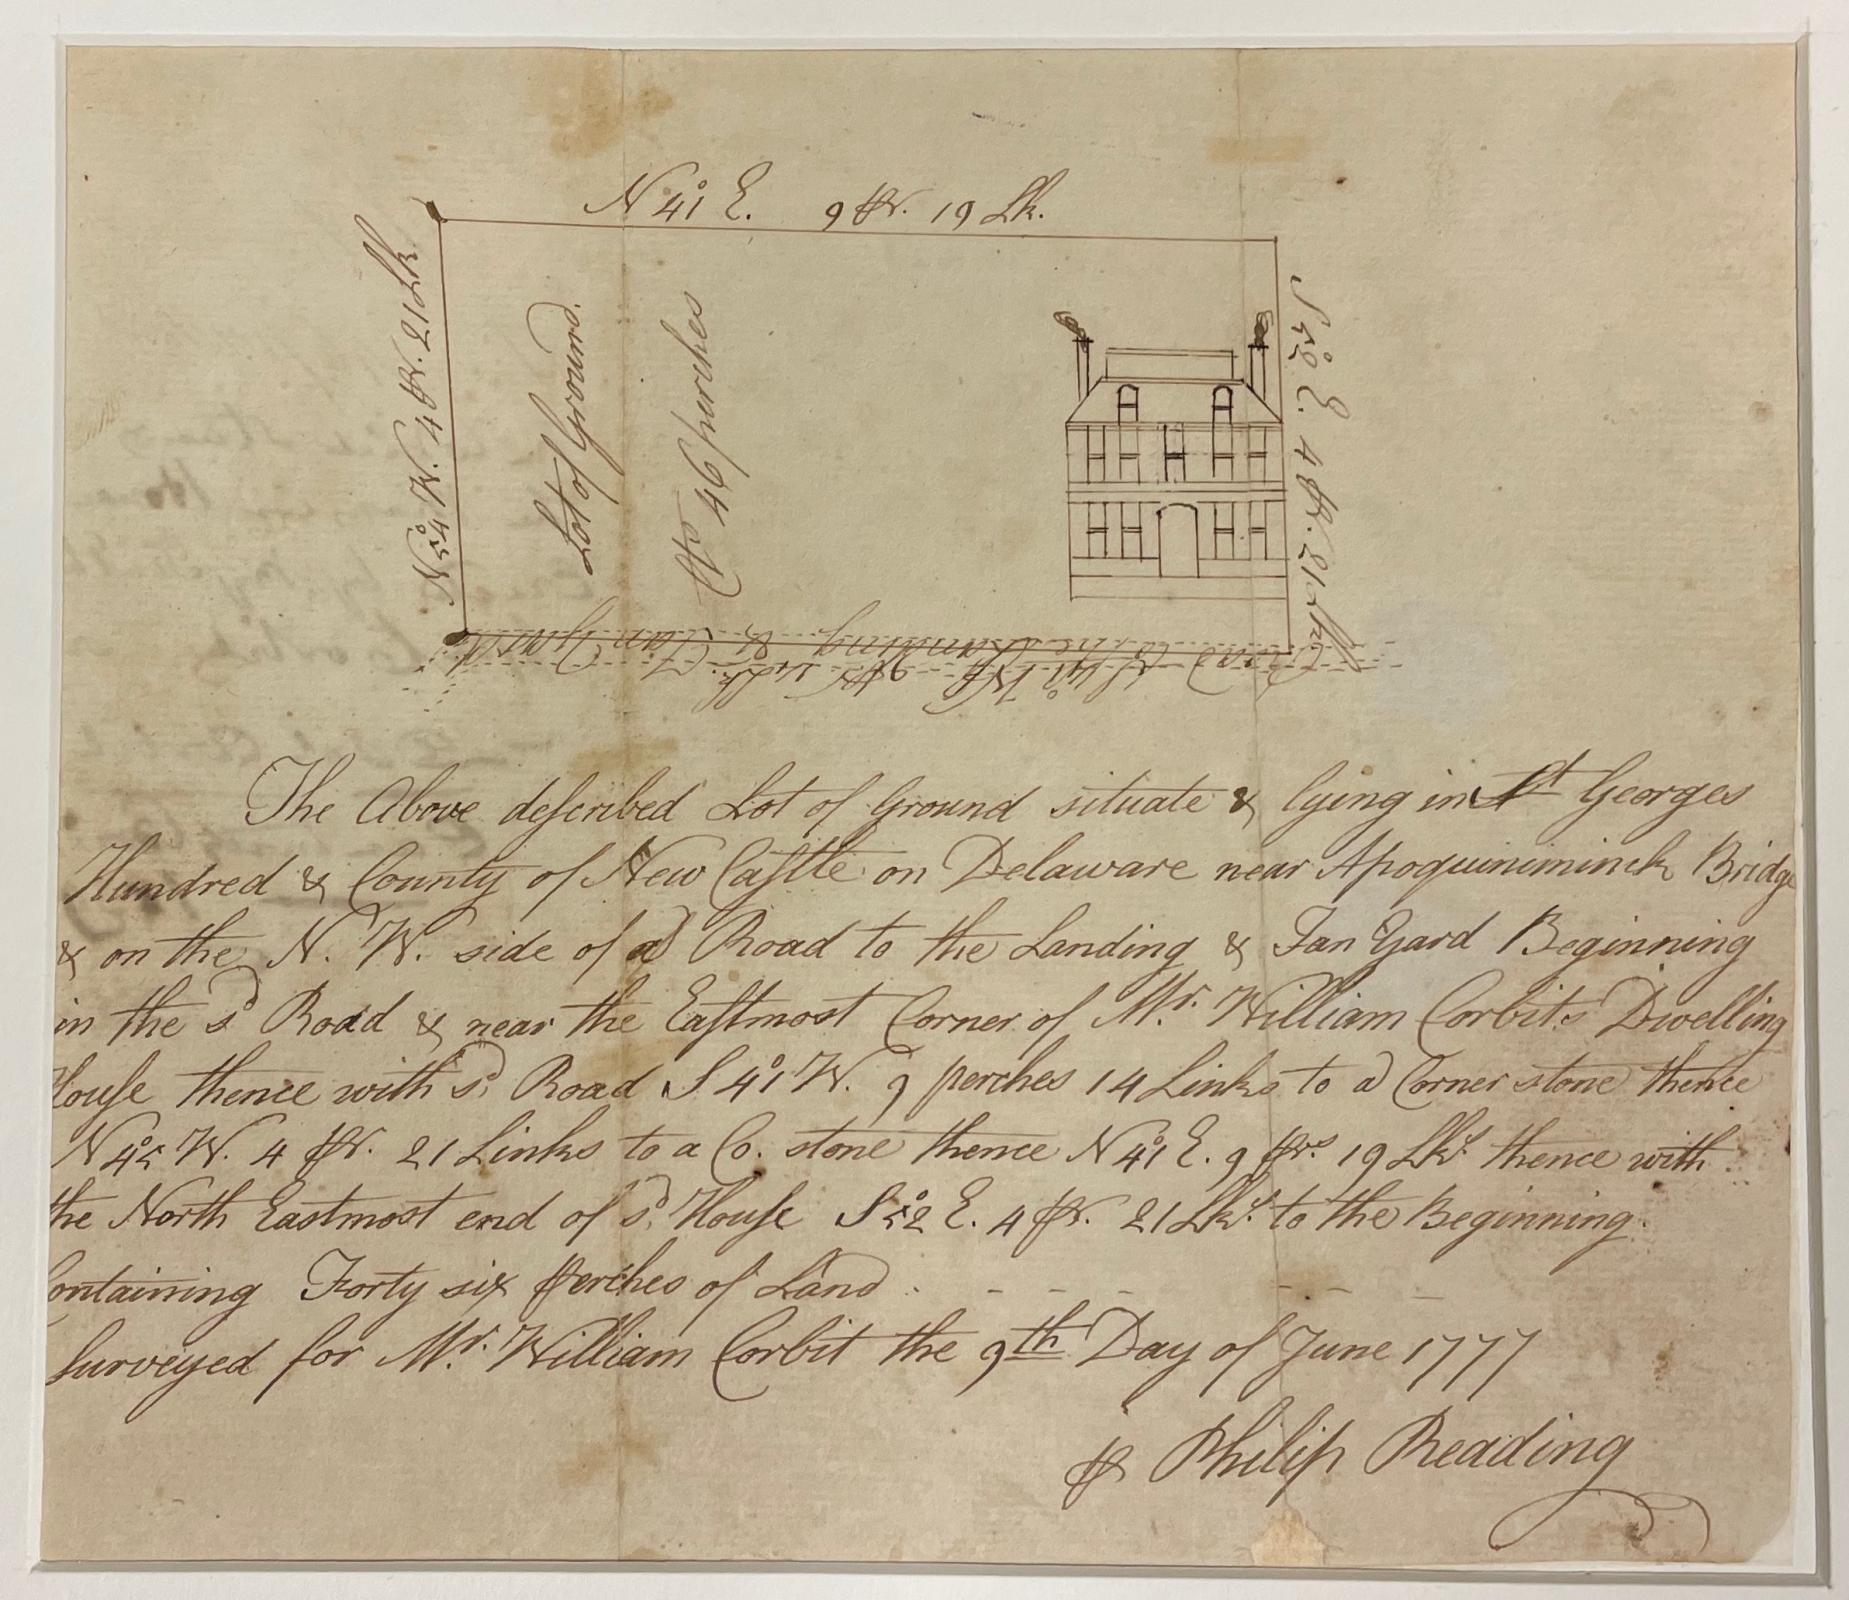 N 41° E. 9 Pr. 19 Lk.
N 54° W. 4 Pr. 21 Lk
Lot of Ground.
Cts 46 perches
S 52° E. 4 Pr. 21 Lk
Road to the Landing & Tan Yard
S 41° W 9 Pr. 14 Lk.
The Above deſcribed Lot of Ground situate & lying in St Georges
Hundred & County of New Caſtle on Delaware near Apoquiniminck Bridge
& on the N. W. side of a Road to the Landing & Tan Yard Beginning
in the sd Road & near the Eaſtmost Corner of Mr. William Corbit's Dwelling
Houſe thence with sd Road S 41° W. 9 perches 14 Links to a Corner stone thence
N 45° W. 4 Pr. 21 Links to a Co. stone thence N 41° E. 9 Prs. 19 Lks thence with
the North Eastmost end of sd House S 52° E. 4 Pr. 21 Lks to the Beginning.
Containing Forty six Perches of Land . - - - - - -
Surveyed for Mr. William Corbit the 9th Day of June 1777
⅌ Philip Reading